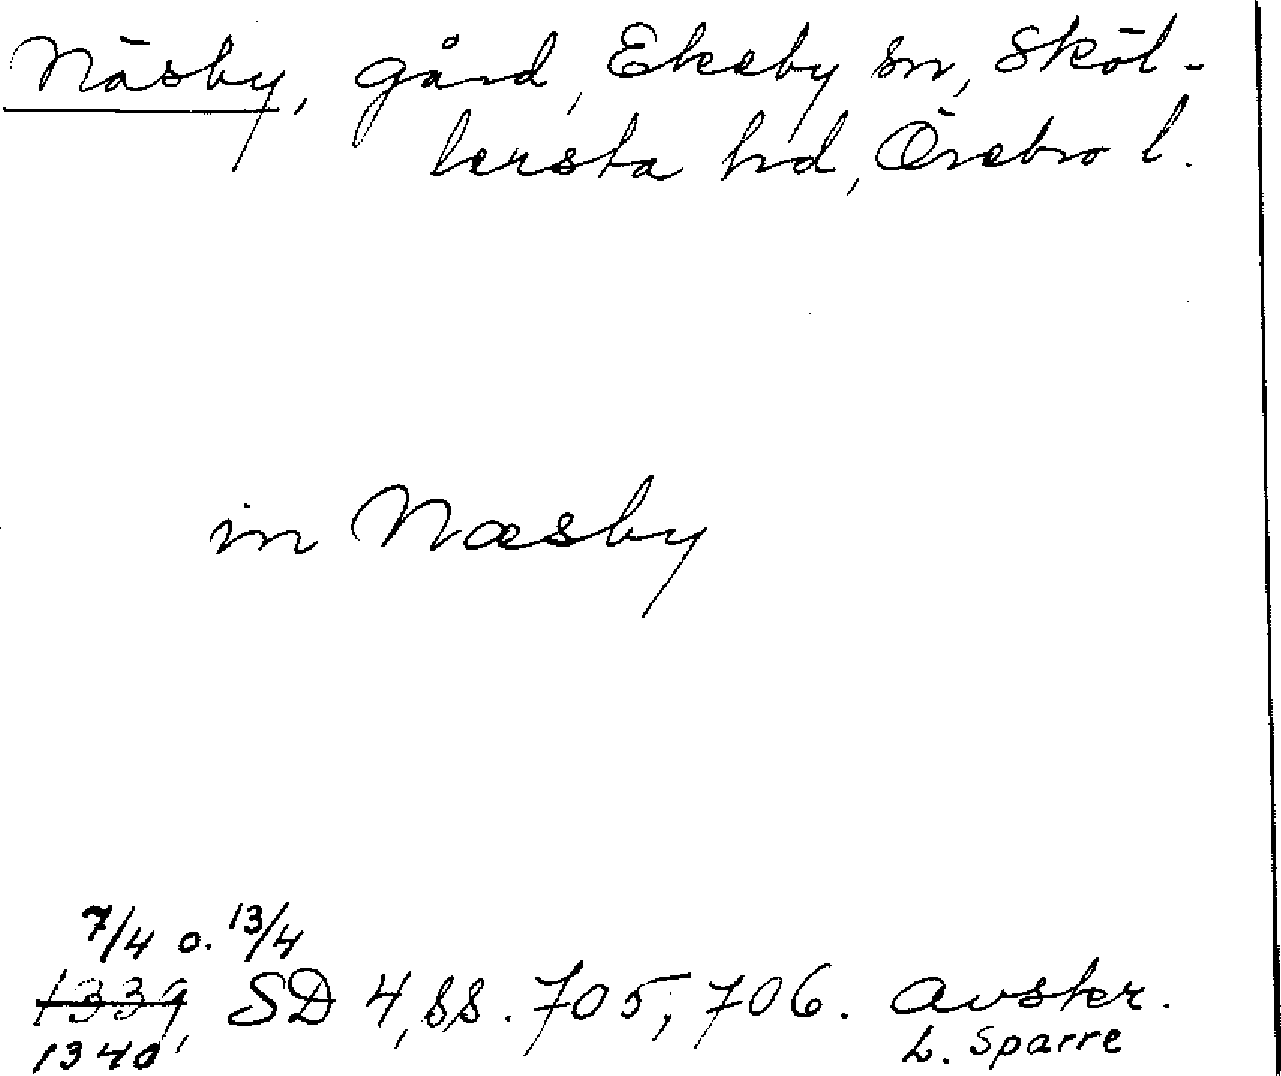 Näsby, gård, Ekeby sn, Sköl-
lersta hd, Örebro l.
in Næsby
7/4 o. 13/4
1339, SD 4, ss. 705, 706. avskr.
1340 L. Sparre